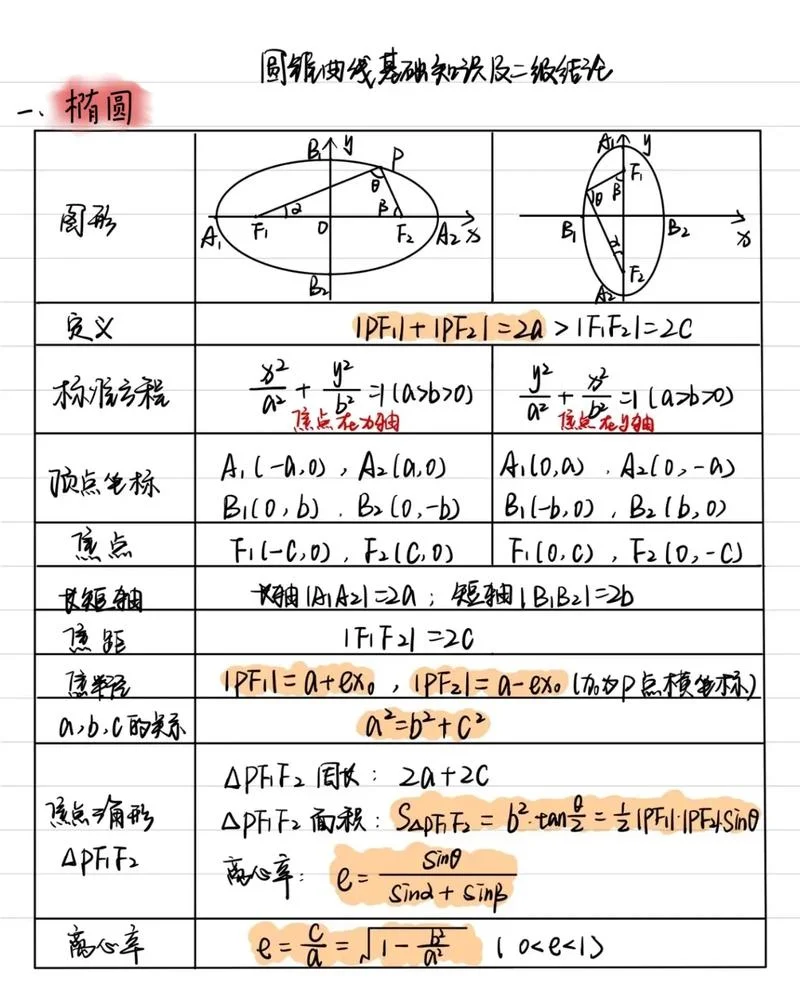 圆锥曲线基础知识及二级结论
一、椭圆
图形
B₁ y P θ α β A₁ F₁ O F₂ A₂ x B₂
A₁ y F₁ β θ B₁ B₂ x α F₂ A₂
定义
|PF₁|+|PF₂|=2a>|F₁F₂|=2c
标准方程
x²/a² + y²/b² =1 (a>b>0)
焦点在x轴
y²/a² + x²/b² =1 (a>b>0)
焦点在y轴
顶点坐标
A₁(-a,0), A₂(a,0)
B₁(0,b), B₂(0,-b)
A₁(0,a), A₂(0,-a)
B₁(-b,0), B₂(b,0)
焦点
F₁(-c,0), F₂(c,0)
F₁(0,c), F₂(0,-c)
长短轴
长轴|A₁A₂|=2a; 短轴|B₁B₂|=2b
焦距
|F₁F₂|=2c
焦半径
|PF₁|=a+ex₀, |PF₂|=a-ex₀ (x₀为P点横坐标)
a,b,c的关系
a²=b²+c²
焦点三角形
△PF₁F₂
△PF₁F₂周长: 2a+2c
△PF₁F₂面积: S△PF₁F₂=b²·tan θ/2 = 1/2|PF₁|·|PF₂|·sinθ
离心率: e= sinθ/(sinα+sinβ)
离心率
e= c/a = √(1- b²/a²) (0<e<1)